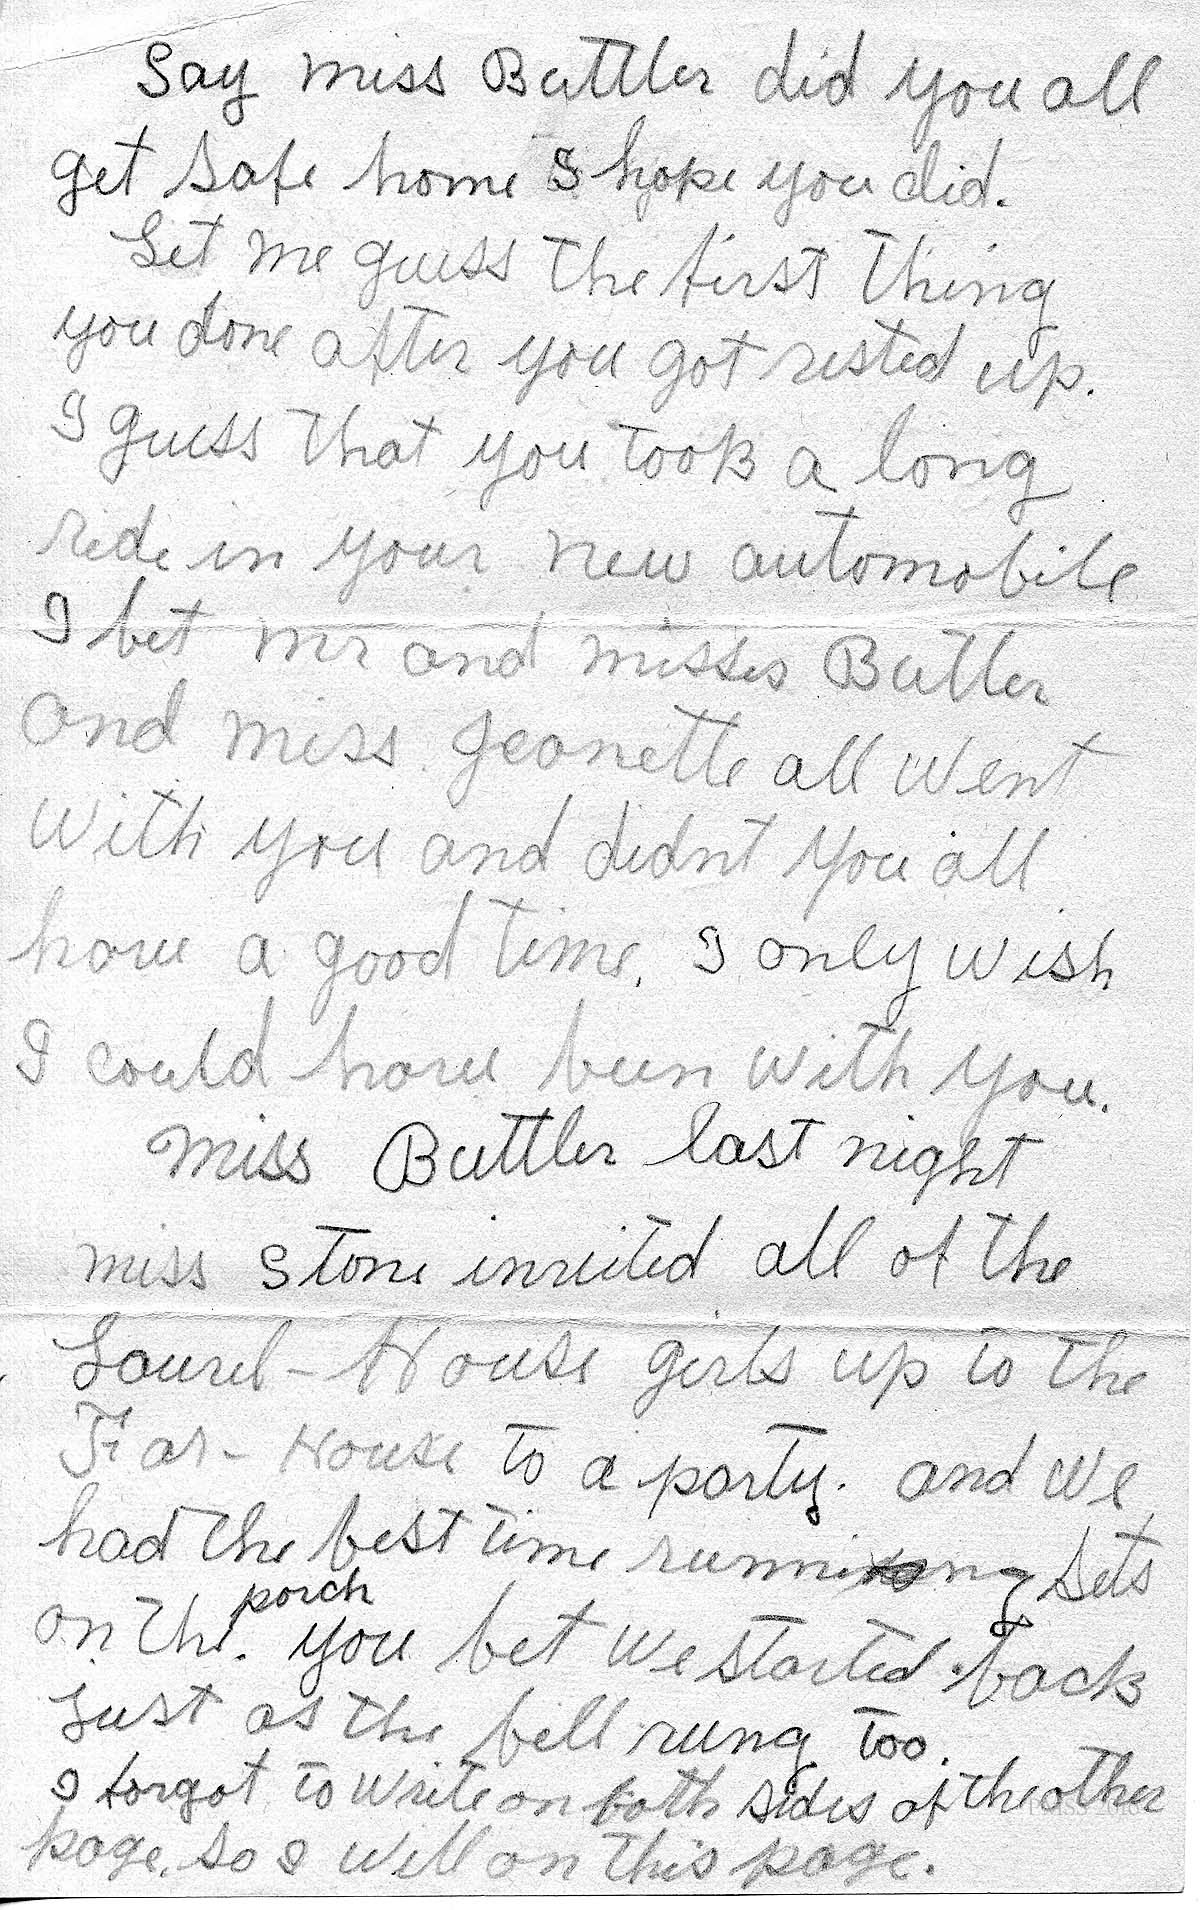 Say miss Buttler did you all
get safe home I hope you did.
Let me guess the first thing
you done after you got rested up.
I guess that you took a long
ride in your new automobile
I bet mr and misses Butler
and miss Jeanette all went
with you and didnt you all
have a good time. I only wish
I could have been with you.
miss Buttler last night
miss Stone invited all of the
Laurel-House girls up to the
House to a party. and we
had the best time running sets
porch
on the. you bet we started back
Just as the bell rung too.
I forgot to write on both sides of the other
page, so I will on this page.